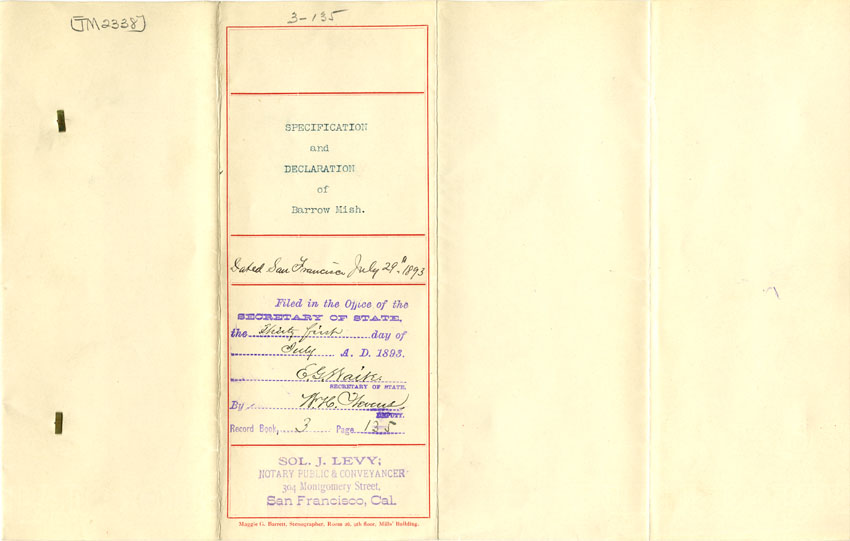 [TM2338]
3-135
SPECIFICATION
and
DECLARATION
of
Barrow Mish.
Dated San Francisco July 29th 1893
Filed in the Office of the
SECRETARY OF STATE,
the Thirty first day of
July A. D. 1893.
E. G. Waite
SECRETARY OF STATE,
By W. H. Stevens
DEPUTY.
Record Book, 3 Page 135
SOL. J. LEVY;
NOTARY PUBLIC & CONVEYANCER
304 Montgomery Street,
San Francisco, Cal.
Maggie G. Barrett, Stenographer, Room 26, 9th floor, Mills' Building.